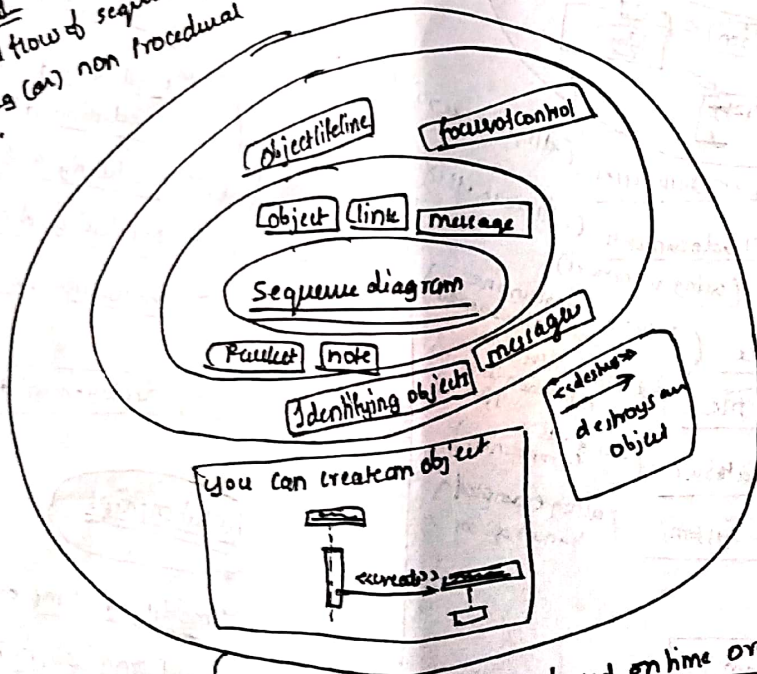 flow of sequ
(or) non Procedural
objectlifeline
focusofcontrol
object link message
Sequence diagram
note
messages
Identifying objects
<<destroy>>
destroys an
object
you can create an object
<<create>>
on time or